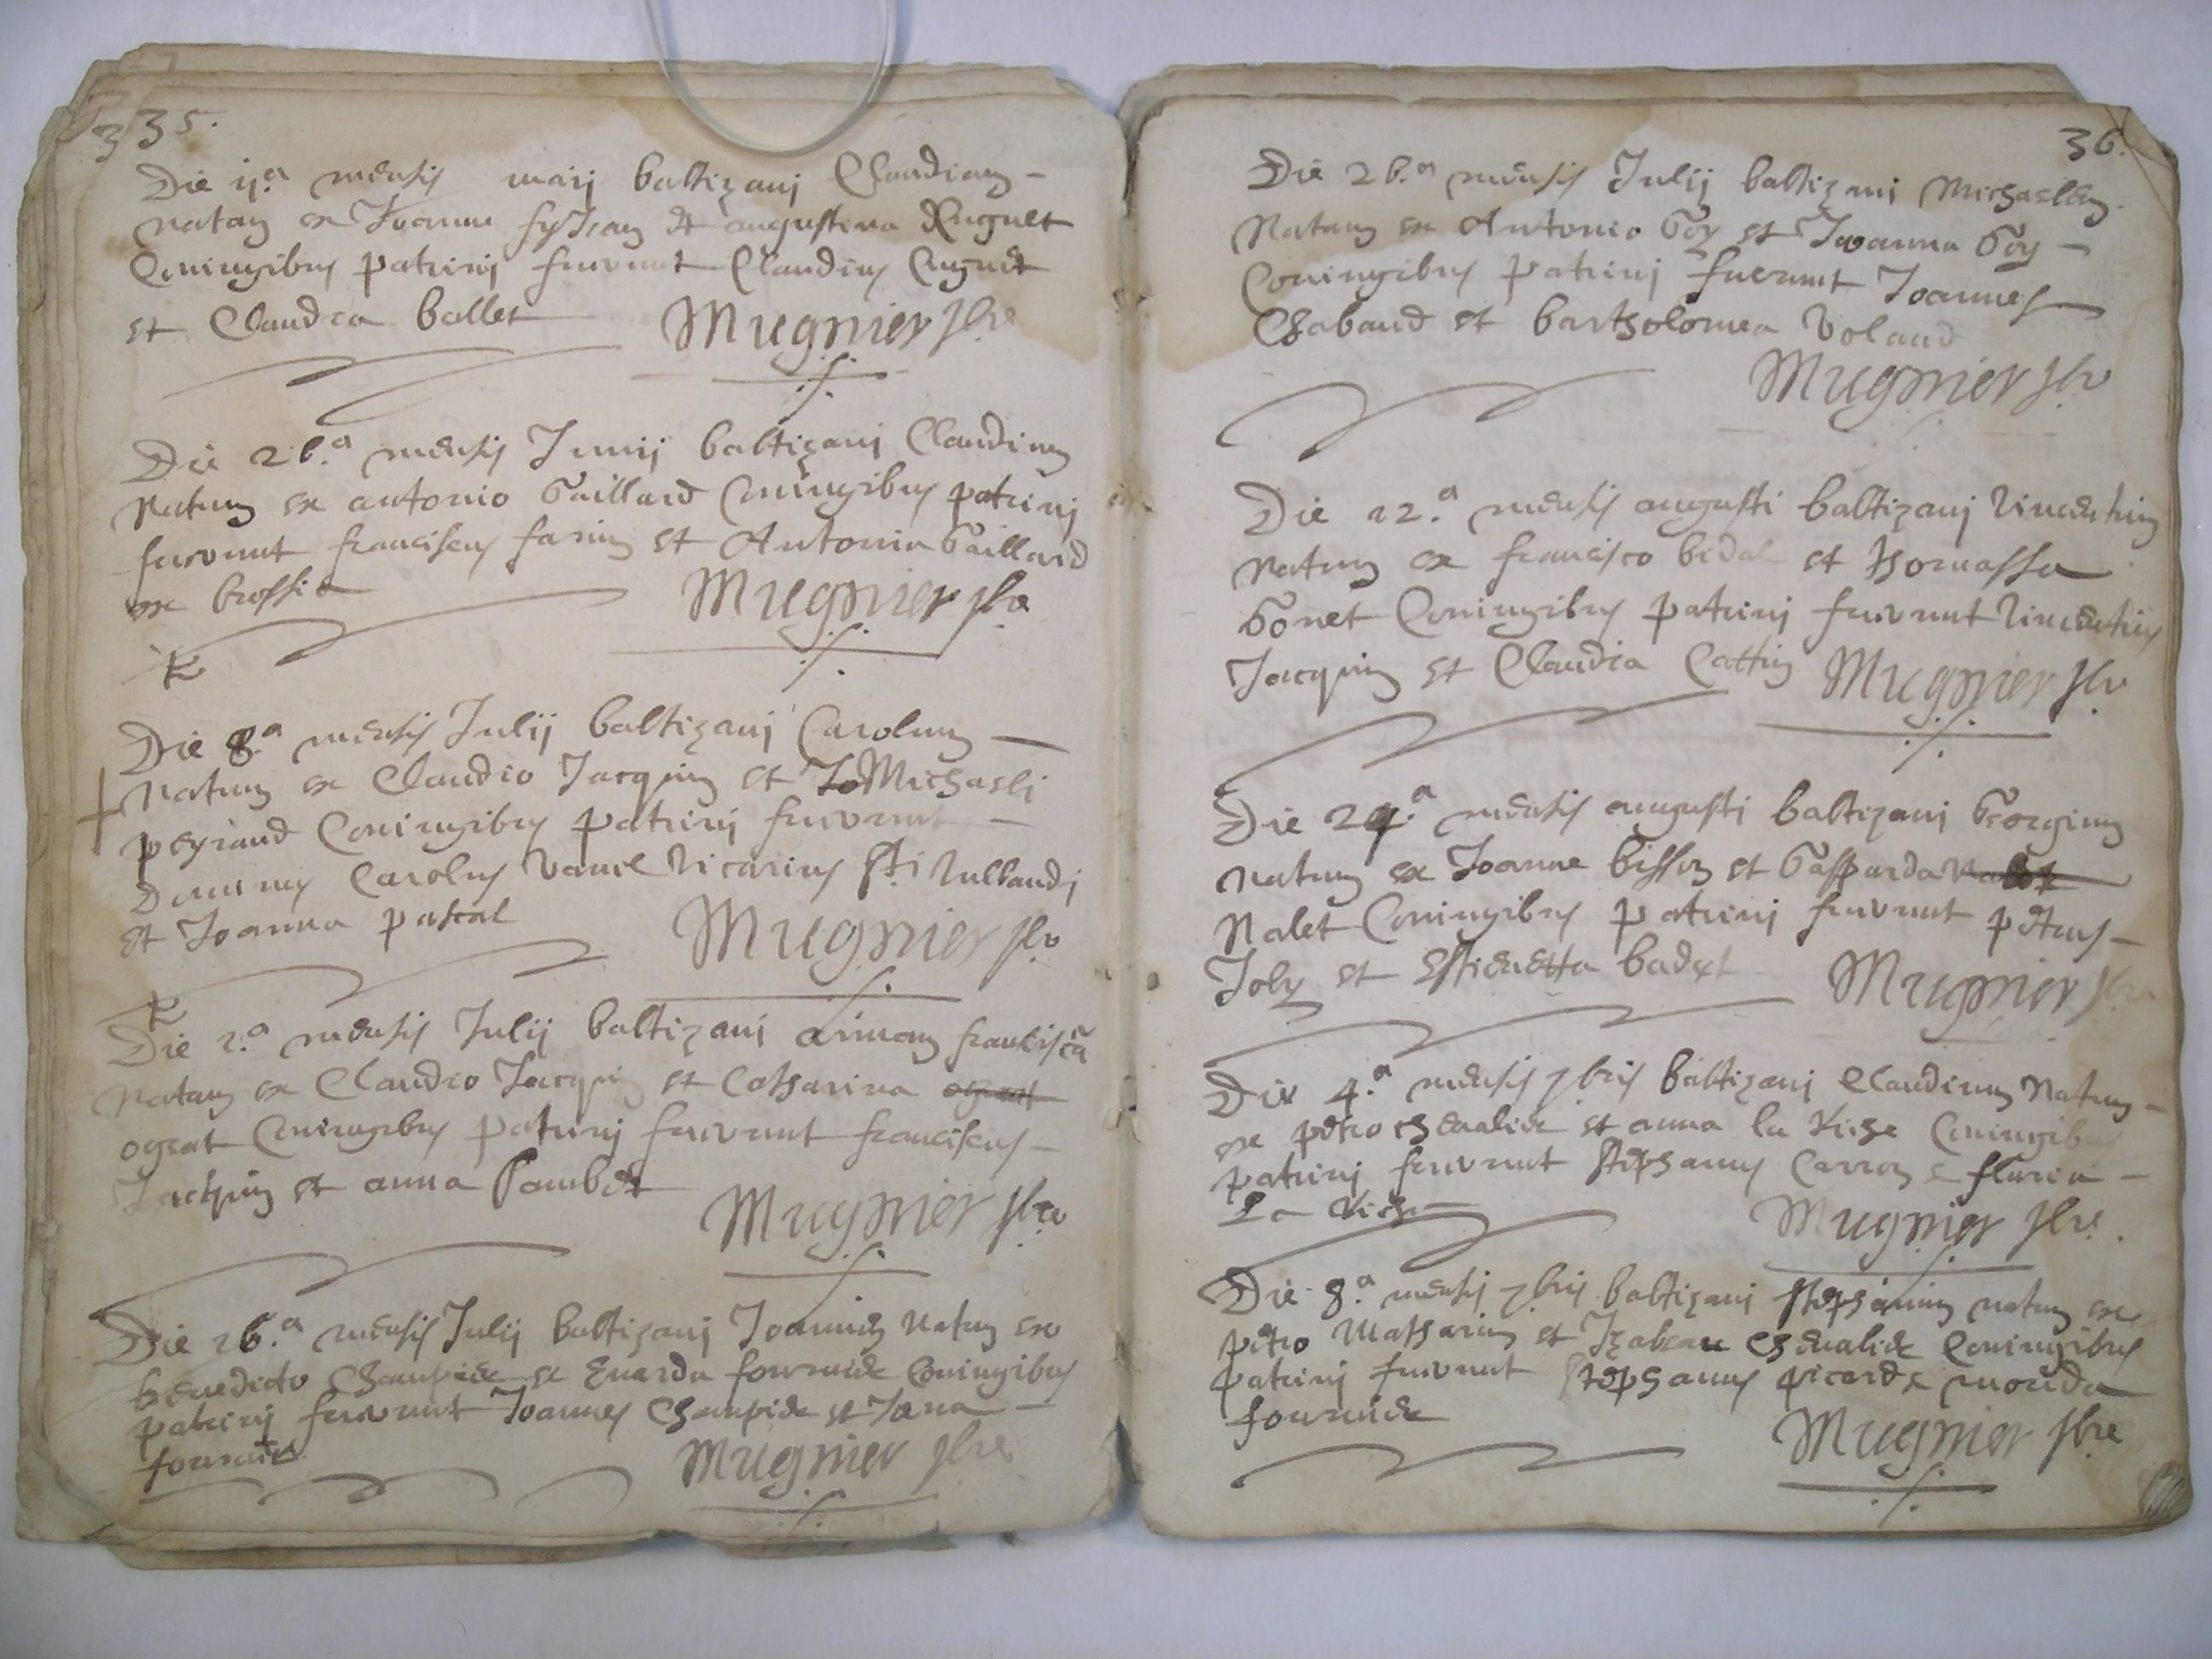 335.
Die 11.a mensis maij baltizavj Claudiam
Natam ex Joanne et augustina
Coniugibus patrinj fuerunt Claudius
et Claudia ballet Mugnier pbre
Die 26.a mensis Junij baltizavj Claudium
Natum ex antonio Gaillard Coniugibus patrinj
fuerunt franciscus et Antonia Gaillard
ex brossia Mugnier pbre
Die 8.a mensis Julij baltizavj Carolum
Natum ex Claudio Jacquin et Michaeli
peyraud Coniugibus patrinj fuerunt
Dominus Carolus Vicarius Sti
et Joanna pascal Mugnier pbre
Die 2.a mensis Julij baltizavj francisca
Natam ex Claudio Jacquin et Catharina
ogeat Coniugibus patrinj fuerunt franciscus
Jachin et anna Mugnier pbre
Die 26.a mensis Julij baltizavj Joannem Natum ex
benedicto Champier et fournier Coniugibus
patrinj fuerunt Joannes Champier et Jana
fournier Mugnier pbre
36.
Die 26.a mensis Julij baltizavj Michaelem
Natum ex Antonio Goy et Joanna Goy
Coniugibus patrinj fuerunt Joannes
Chabaud et bartholomea Voland
Mugnier pbre
Die 12.a mensis augusti baltizavj Vincentium
Natum ex francisco bidal et thomassa
Gonet Coniugibus patrinj fuerunt Vincentius
Jacquin et Claudia Cattin Mugnier pbre
Die 29.a mensis augusti baltizavj Georgium
Natum ex Joanne bisson et Gasparda
Nalet Coniugibus patrinj fuerunt petrus
Joly et Estienetta badet Mugnier pbre
Die 4.a mensis 7bris baltizavj Claudium Natum
ex petro chevalier et anna la Viche Coniugibus
patrinj fuerunt stephanus Carron & floria
La Viche Mugnier pbre.
Die 8.a mensis 7bris baltizavj stephanum natum ex
petro Matharin et Izabeau chevalier Coniugibus
patrinj fuerunt stephanus picard &
fournier Mugnier pbre